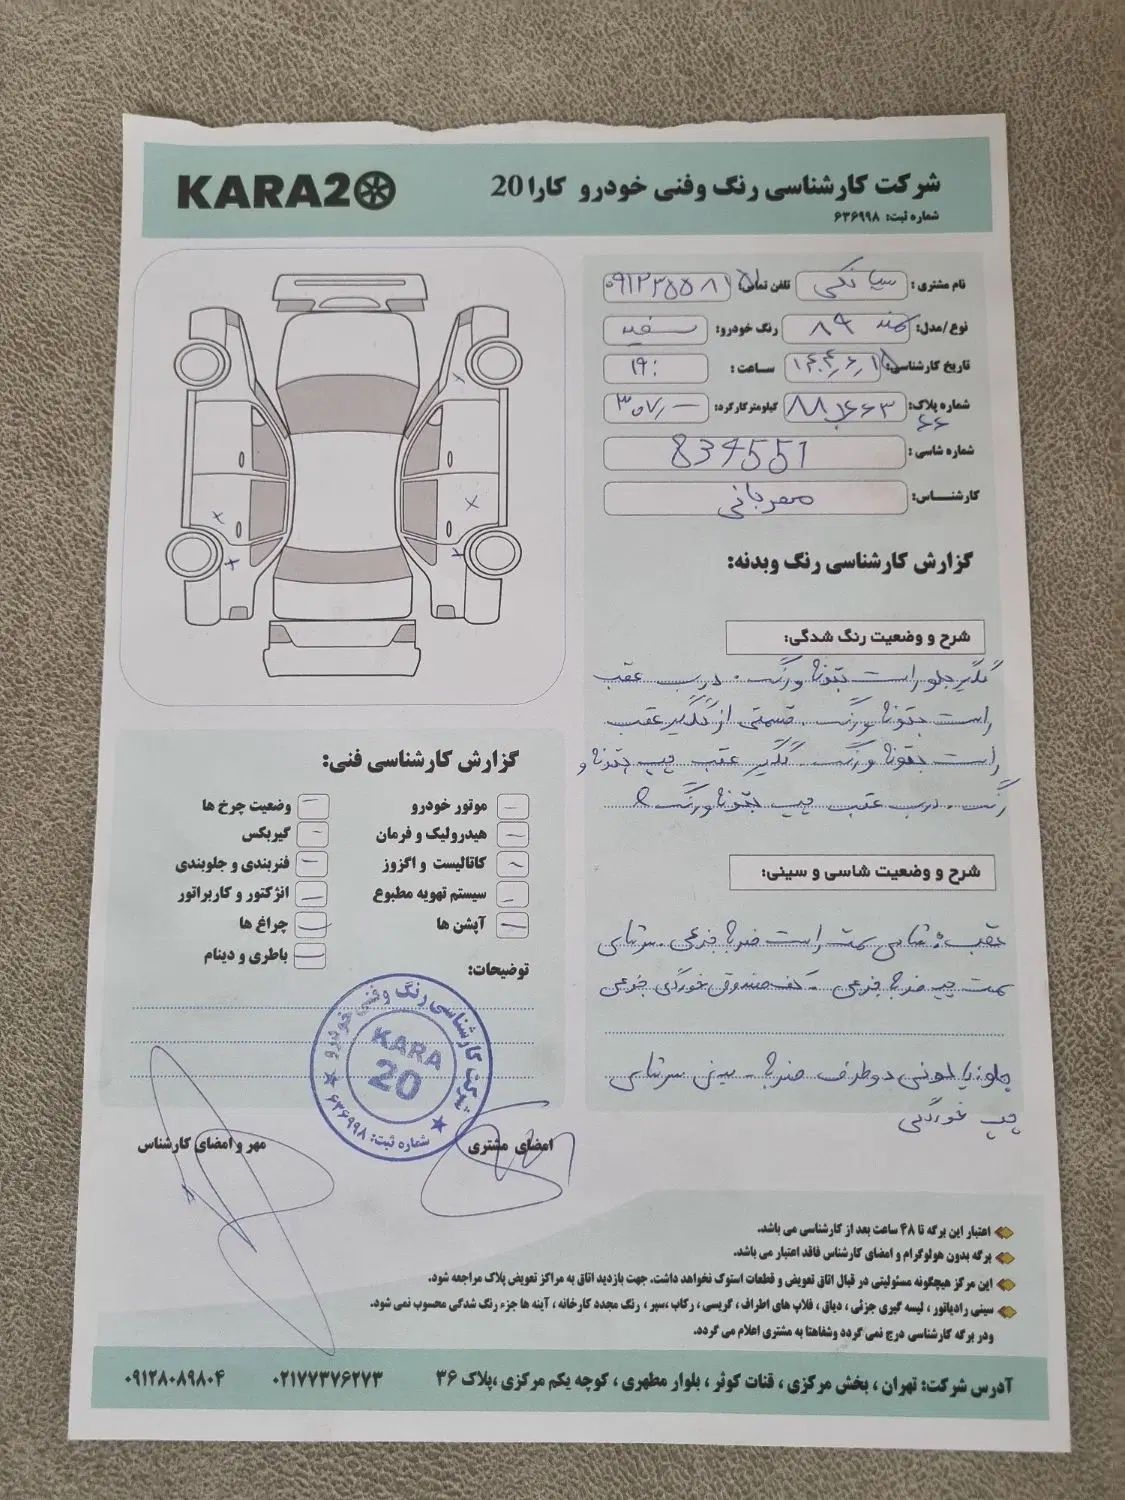 شرکت کارشناسی رنگ وفنی خودرو کارا 20
KARA20
شماره ثبت: ۶۳۶۹۹۸
نام مشتری: سیانکی تلفن تماس:
نوع/مدل: سمند ۸۹ رنگ خودرو: سفید
تاریخ کارشناسی: ساعت: ۱۹:
شماره پلاک: کیلومترکارکرد:
شماره شاسی: 834551
کارشناس: مهربانی
گزارش کارشناسی رنگ وبدنه:
شرح و وضعیت رنگ شدگی:
گلگیر جلو راست بتونه و رنگ. درب عقب
راست بتونه و رنگ. قسمتی از گلگیر عقب
راست بتونه و رنگ. گلگیر عقب چپ بتونه و
رنگ. درب عقب چپ بتونه و رنگ
شرح و وضعیت شاسی و سینی:
عقب: شاسی سمت راست ضربه جزعی. سرشاسی
سمت چپ ضربه جزعی. کف صندوق خوردگی جزعی
جلو: پالونی دو طرف ضربه. سینی سرشاسی
چپ خوردگی
گزارش کارشناسی فنی:
موتور خودرو
وضعیت چرخ ها
هیدرولیک و فرمان
گیربکس
کاتالیست و اگزوز
فنربندی و جلوبندی
سیستم تهویه مطبوع
انژکتور و کاربراتور
آپشن ها
چراغ ها
باطری و دینام
توضیحات:
شرکت کارشناسی رنگ وفنی خودرو
KARA
20
شماره ثبت: ۶۳۶۹۹۸
امضای مشتری
مهر و امضای کارشناس
اعتبار این برگه تا ۴۸ ساعت بعد از کارشناسی می باشد.
برگه بدون هولوگرام و امضای کارشناس فاقد اعتبار می باشد.
این مرکز هیچگونه مسئولیتی در قبال اتاق تعویض و قطعات استوک نخواهد داشت. جهت بازدید اتاق به مراکز تعویض پلاک مراجعه شود.
سینی رادیاتور، لیسه گیری جزئی، دیاق، فلاپ های اطراف، گریسی، رکاب، سپر، رنگ مجدد کارخانه، آینه ها جزء رنگ شدگی محسوب نمی شود.
ودر برگه کارشناسی درج نمی گردد وشفاهتا به مشتری اعلام می گردد.
آدرس شرکت: تهران، بخش مرکزی، قنات کوثر، بلوار مطهری، کوچه یکم مرکزی، پلاک ۳۶
۰۲۱۷۷۳۷۶۲۷۳
۰۹۱۲۸۰۸۹۸۰۴